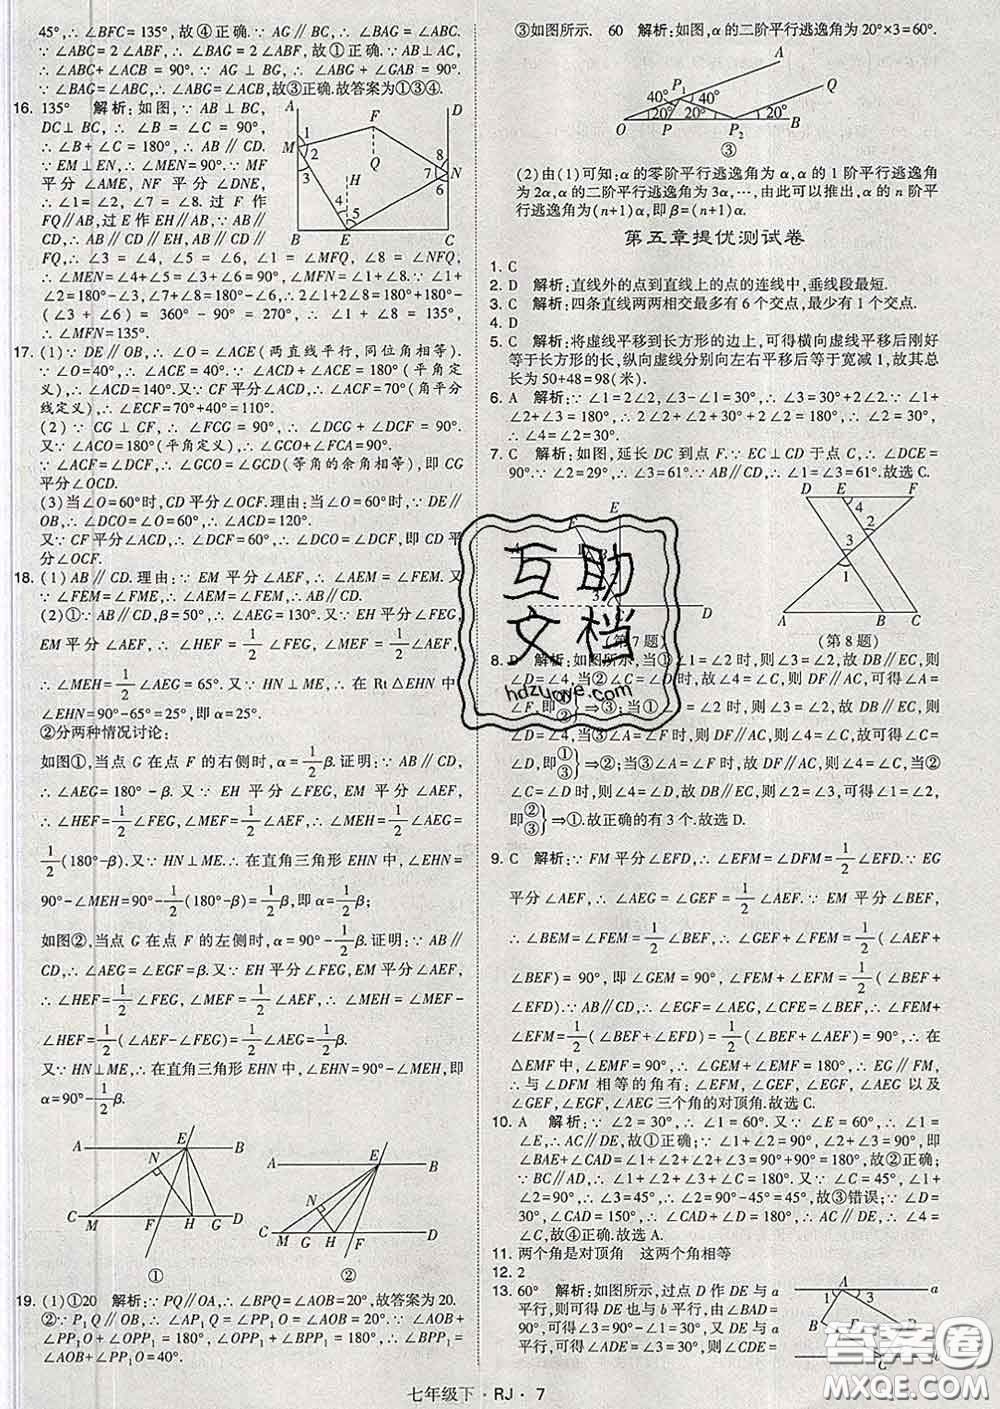 45°,∴∠BFC=135°,故④正确.∵∠ABF=∠ABE,
∴∠ABC=2∠ABF,故①正确.∵AB⊥AC,
∴∠ABC+∠ACB=90°.∵AG⊥BG,∴∠ABG+∠GAB=90°.
∵∠ABG=∠ABC,∴∠BAG=∠ACB,故③正确.故答案为①③④.
16. 135° 解析:如图,∵AB⊥BC,
DC⊥BC,∴∠B=∠C=90°,
∴∠B+∠C=180°,∴AB∥CD.
∵EM⊥EN,∴∠MEN=90°.∵MF
平分∠AME,NF平分∠DNE,
∴∠1=∠2,∠7=∠8.过F作
FQ∥AB,过E作EH∥AB,∵AB∥
CD,∴AB∥CD∥EH,AB∥CD∥
FQ,∴∠3=∠4,∠5=∠6,∠1=∠MFQ,∠8=∠NFQ,
∴∠4+∠5=∠3+∠6=90°,∠MFN=∠1+∠8.∵∠1+
∠2+∠3=180°,∠6+∠7+∠8=180°,∴2∠1+2∠8=180°+180°-
(∠3+∠6)=360°-90°=270°,∴∠1+∠8=135°,
∴∠MFN=135°.
A M B E C N D F Q H 1 2 3 4 5 6 7 8
17. (1)∵DE∥OB,∴∠O=∠ACE(两直线平行,同位角相等).
∵∠O=40°,∴∠ACE=40°.∵∠ACD+∠ACE=180°(平角定
义),∴∠ACD=140°.又∵CF平分∠ACD,∴∠ACF=70°(角平分
线定义),∴∠ECF=70°+40°=110°.
(2)∵CG⊥CF,∴∠FCG=90°,∴∠DCG+∠DCF=90°.
又∵∠ACO=180°(平角定义),∴∠GCO+∠FCA=90°.
∵∠ACF=∠DCF,∴∠GCO=∠GCD(等角的余角相等),即CG
平分∠OCD.
(3)当∠O=60°时,CD平分∠OCF.理由:当∠O=60°时,∵DE∥
OB,∴∠DCO=∠O=60°,∴∠ACD=120°.
又∵CF平分∠ACD,∴∠DCF=60°,∴∠DCO=∠DCF,即CD平分
∠OCF.
18. (1)AB∥CD.理由:∵EM平分∠AEF,∴∠AEM=∠FEM.又
∵∠FEM=∠FME,∴∠AEM=∠FME,∴AB∥CD.
(2)①∵AB∥CD,β=50°,∴∠AEG=130°.又∵EH平分∠FEG,
EM平分∠AEF,∴∠HEF=1/2∠FEG,∠MEF=1/2∠AEF,
∴∠MEH=1/2∠AEG=65°.又∵HN⊥ME,∴在Rt△EHN中,
∠EHN=90°-65°=25°,即α=25°.
②分两种情况讨论:
如图①,当点G在点F的右侧时,α=1/2β.证明:∵AB∥CD,
∴∠AEG=180°-β.又∵EH平分∠FEG,EM平分∠AEF,
∴∠HEF=1/2∠FEG,∠MEF=1/2∠AEF,∴∠MEH=1/2∠AEG=
1/2(180°-β).又∵HN⊥ME,∴在直角三角形EHN中,∠EHN=
90°-∠MEH=90°-1/2(180°-β)=1/2β,即α=1/2β;
如图②,当点G在点F的左侧时,α=90°-1/2β.证明:∵AB∥
CD,∴∠AEG=∠EGF=β.又∵EH平分∠FEG,EM平分∠AEF,
∴∠HEF=1/2∠FEG,∠MEF=1/2∠AEF,∴∠MEH=∠MEF-
∠HEF=1/2(∠AEF-∠FEG)=1/2∠AEG=1/2β.
又∵HN⊥ME,∴在直角三角形EHN中,∠EHN=90°-∠MEH,即
α=90°-1/2β.
A E B N C M F H G D ①
A E B N C M G H F D ②
19. (1)①20 解析:∵PQ∥OA,∴∠BPQ=∠AOB=20°,故答案为20.
②∵P₁Q∥OB,∴∠AP₁Q=∠PP₁O=∠AOB=20°,∴∠AOB+
∠PP₁O+∠OPP₁=180°,∠OPP₁+∠BPP₁=180°,∴∠BPP₁=
∠AOB+∠PP₁O=40°.
③如图所示. 60 解析:如图,α的二阶平行逃逸角为20°×3=60°.
A Q P₁ 40° 40° 20° 20° 20° O P P₂ B ③
(2)由(1)可知:α的零阶平行逃逸角为α,α的1阶平行逃逸角
为2α,α的二阶平行逃逸角为3α,…,由此可以推出,α的n阶平
行逃逸角为(n+1)α,即β=(n+1)α.
第五章提优测试卷
1. C
2. D 解析:直线外的点到直线上的点的连线中,垂线段最短.
3. C 解析:四条直线两两相交最多有6个交点,最少有1个交点.
4. D
5. C 解析:将虚线平移到长方形的边上,可得横向虚线平移后刚好
等于长方形的长,纵向虚线分别向左右平移后等于宽减1,故其总
长为50+48=98(米).
6. A 解析:∵∠1=2∠2,∠3-∠1=30°,∴∠3=30°+2∠2.∵∠1+
∠2+∠3=180°,∴2∠2+∠2+30°+2∠2=180°,∴∠2=30°,
∴∠4=∠2=30°.
7. C 解析:如图,延长DC到点F.∵EC⊥CD于点C,∴∠DCE=
90°.∵∠2=29°,∴∠3=61°.∵AB∥CD,∴∠1=∠3=61°.故选C.
E D (第7题)
D E F 4 2 3 1 A B C (第8题)
8. D 解析:如图所示,当①∠1=∠2时,则∠3=∠2,故DB∥EC,则
∠D=∠4,当②∠C=∠D时,则∠4=∠C,故DF∥AC,可得∠A=
∠F,即①②}⇒③;当①∠1=∠2时,则∠3=∠2,故DB∥EC,则
∠D=∠4,当③∠A=∠F时,则DF∥AC,故∠4=∠C,故可得∠C=
∠D,即①③}⇒②;当③∠A=∠F时,则DF∥AC,故∠4=∠C,当②
∠C=∠D时,则∠4=∠D,故DB∥EC,则∠2=∠3,可得∠1=∠2,
即②③}⇒①.故正确的有3个.故选D.
9. C 解析:∵FM平分∠EFD,∴∠EFM=∠DFM=1/2∠EFD.∵EG
平分∠AEF,∴∠AEG=∠GEF=1/2∠AEF.∵EM平分∠BEF,
∴∠BEM=∠FEM=1/2∠BEF,∴∠GEF+∠FEM=1/2(∠AEF+
∠BEF)=90°,即∠GEM=90°,∠FEM+∠EFM=1/2(∠BEF+
∠EFD).∵AB∥CD,∴∠EGF=∠AEG,∠CFE=∠BEF,∴∠FEM+
∠EFM=1/2(∠BEF+∠EFD)=1/2(∠BEF+∠AEF)=90°,∴在
△EMF中,∠EMF=90°,∴∠GEM+∠EMF=180°,∴EG∥FM,
∴与∠DFM相等的角有:∠EFM,∠GEF,∠EGF,∠AEG以及
∠GEF,∠EGF,∠AEG三个角的对顶角.故选C.
10. A 解析:∵∠2=30°,∴∠1=60°.又∵∠E=60°,∴∠1=
∠E,∴AC∥DE,故①正确;∵∠1+∠2=90°,∠2+∠3=90°,即
∠BAE+∠CAD=∠1+∠2+∠2+∠3=90°+90°=180°,故②正确;
∵BC∥AD,∴∠1+∠2+∠3+∠C=180°.又∵∠C=45°,∠1+
∠2=90°,∴∠3=45°,∴∠2=90°-45°=45°,故③错误;∵∠D=
30°,∠CAD=150°,∴∠CAD+∠D=180°,∴AC∥DE,∴∠4=
∠C,故④正确.故选A.
11. 两个角是对顶角 这两个角相等
12. 2
13. 60° 解析:如图所示,过点D作DE与a
平行,则可得DE也与b平行,由∠BAD=
90°,可得∠3=90°-∠1=90°-30°=60°.
由平行可得∠ADE=∠3=30°,则可得
A a 1 3 B D
七年级下·RJ·7
互助文档
hdzuoye.com
答案圈
MXQE.COM